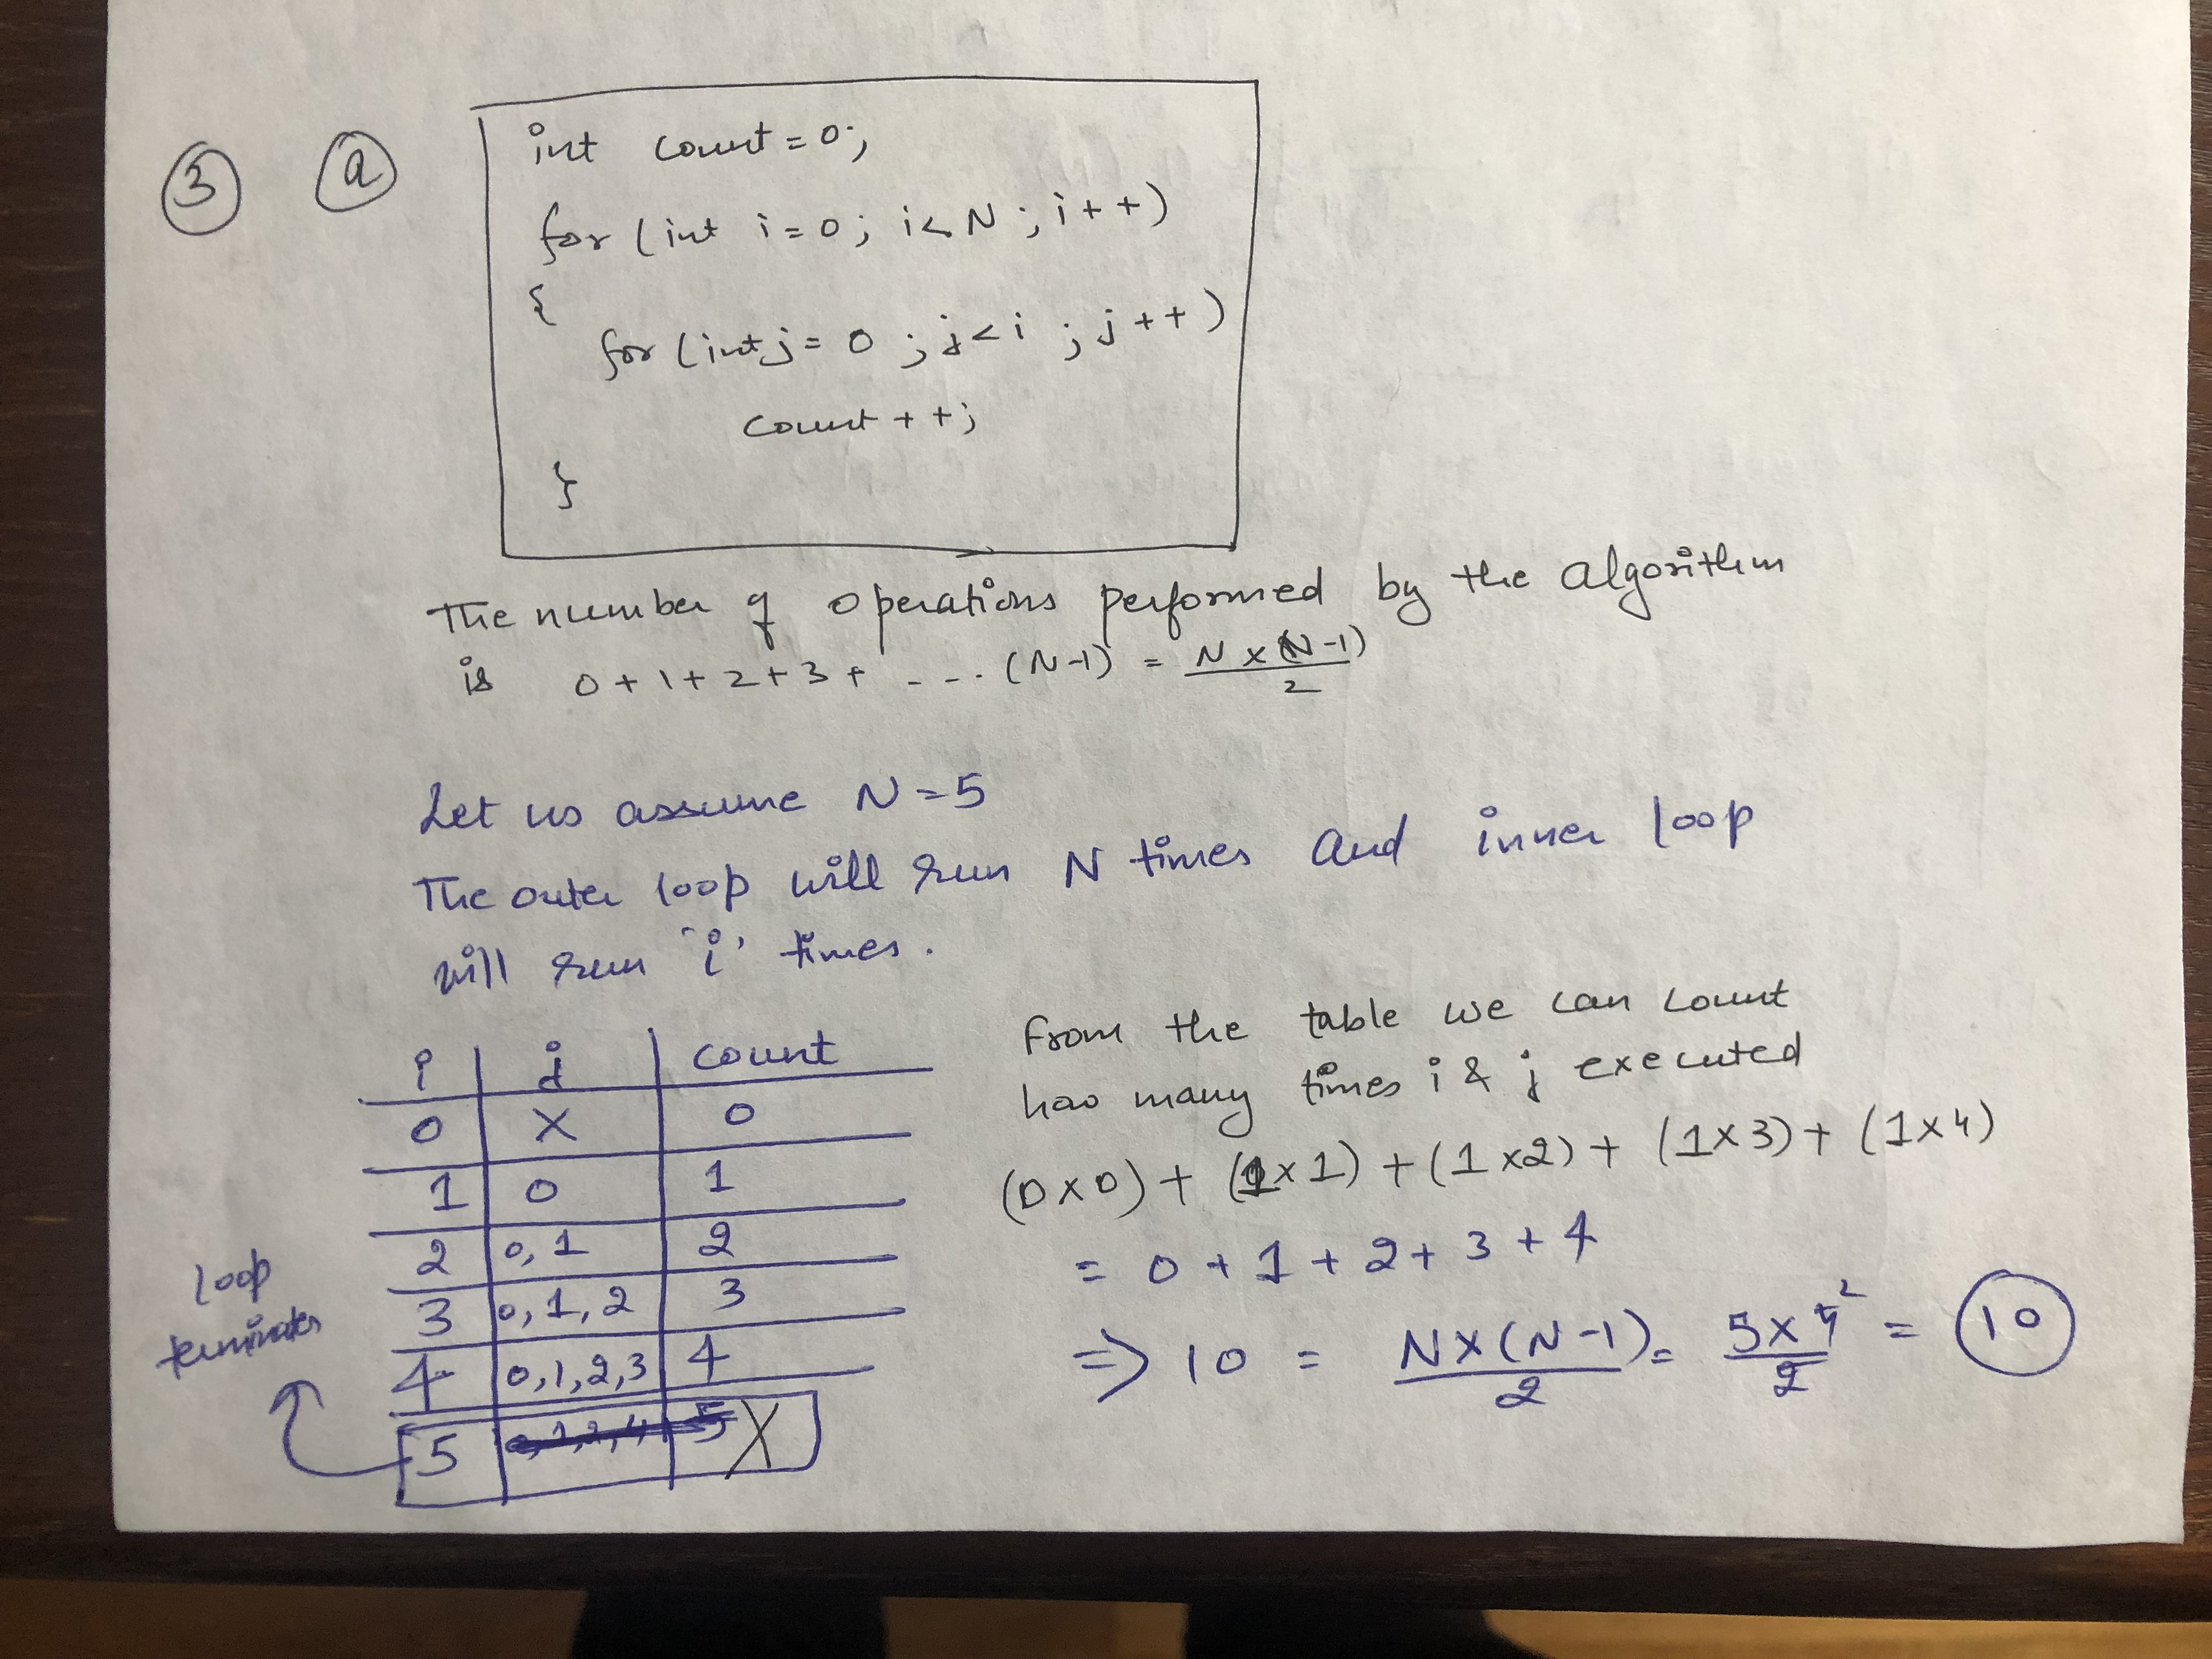 3 a
int count = 0;
for (int i = 0; i < N; i++)
{
for (int j = 0; j < i; j++)
count++;
}
The number of operations performed by the algorithm
is 0 + 1 + 2 + 3 + - - . . (N-1) = N x (N-1) / 2
Let us assume N = 5
The outer loop will run N times and inner loop
will run 'i' times.
i j count
0 X 0
1 0 1
2 0, 1 2
3 0, 1, 2 3
4 0, 1, 2, 3 4
5 X
loop
terminates
From the table we can count
how many times i & j executed
(0 x 0) + (1 x 1) + (1 x 2) + (1 x 3) + (1 x 4)
= 0 + 1 + 2 + 3 + 4
=> 10 = N x (N-1) / 2 = 5 x 4 2 / 2 = 10